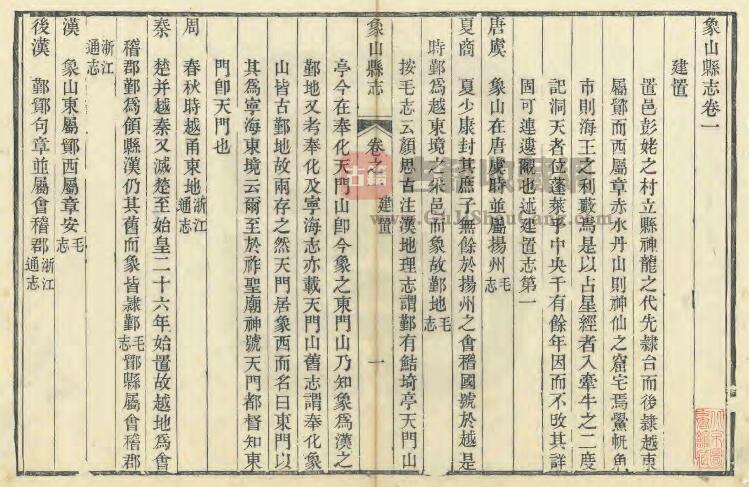 象山縣志卷一
建置
置邑彭姥之村立縣神龍之代先隸台而後隸越東
屬鄮而西屬章赤水丹山則神仙之窟宅焉鱟帆魚
市則海王之利藪焉是以占星經者入牽牛之二度
記洞天者位蓬萊乎中央千有餘年因而不改其詳
固可連遱覼也述建置志第一
唐虞 象山在唐虞時並屬揚州毛志
夏商 夏少康封其庶子無餘於揚州之會稽國號於越是
時鄞為越東境之采邑而象故鄞地毛志
按毛志云顏思古注漢地理志謂鄞有鮚埼亭天門山
象山縣志 卷之一 建置 一
亭今在奉化天門山卽今象之東門山乃知象為漢之
鄞地又考奉化及寧海志亦載天門山舊志謂奉化象
山皆古鄞地故兩存之然天門居象西而名曰東門以
其為寧海東境云爾至於祚聖廟神號天門都督知東
門卽天門也
周 春秋時越甬東地浙江通志
秦 楚并越秦又滅楚至始皇二十六年始置故越地為會
稽郡鄞為領縣漢仍其舊而象皆隸鄞毛志鄮縣屬會稽郡
浙江通志
漢 象山東屬鄮西屬章安毛志
後漢 鄞鄮句章並屬會稽郡浙江通志
古籍收藏網